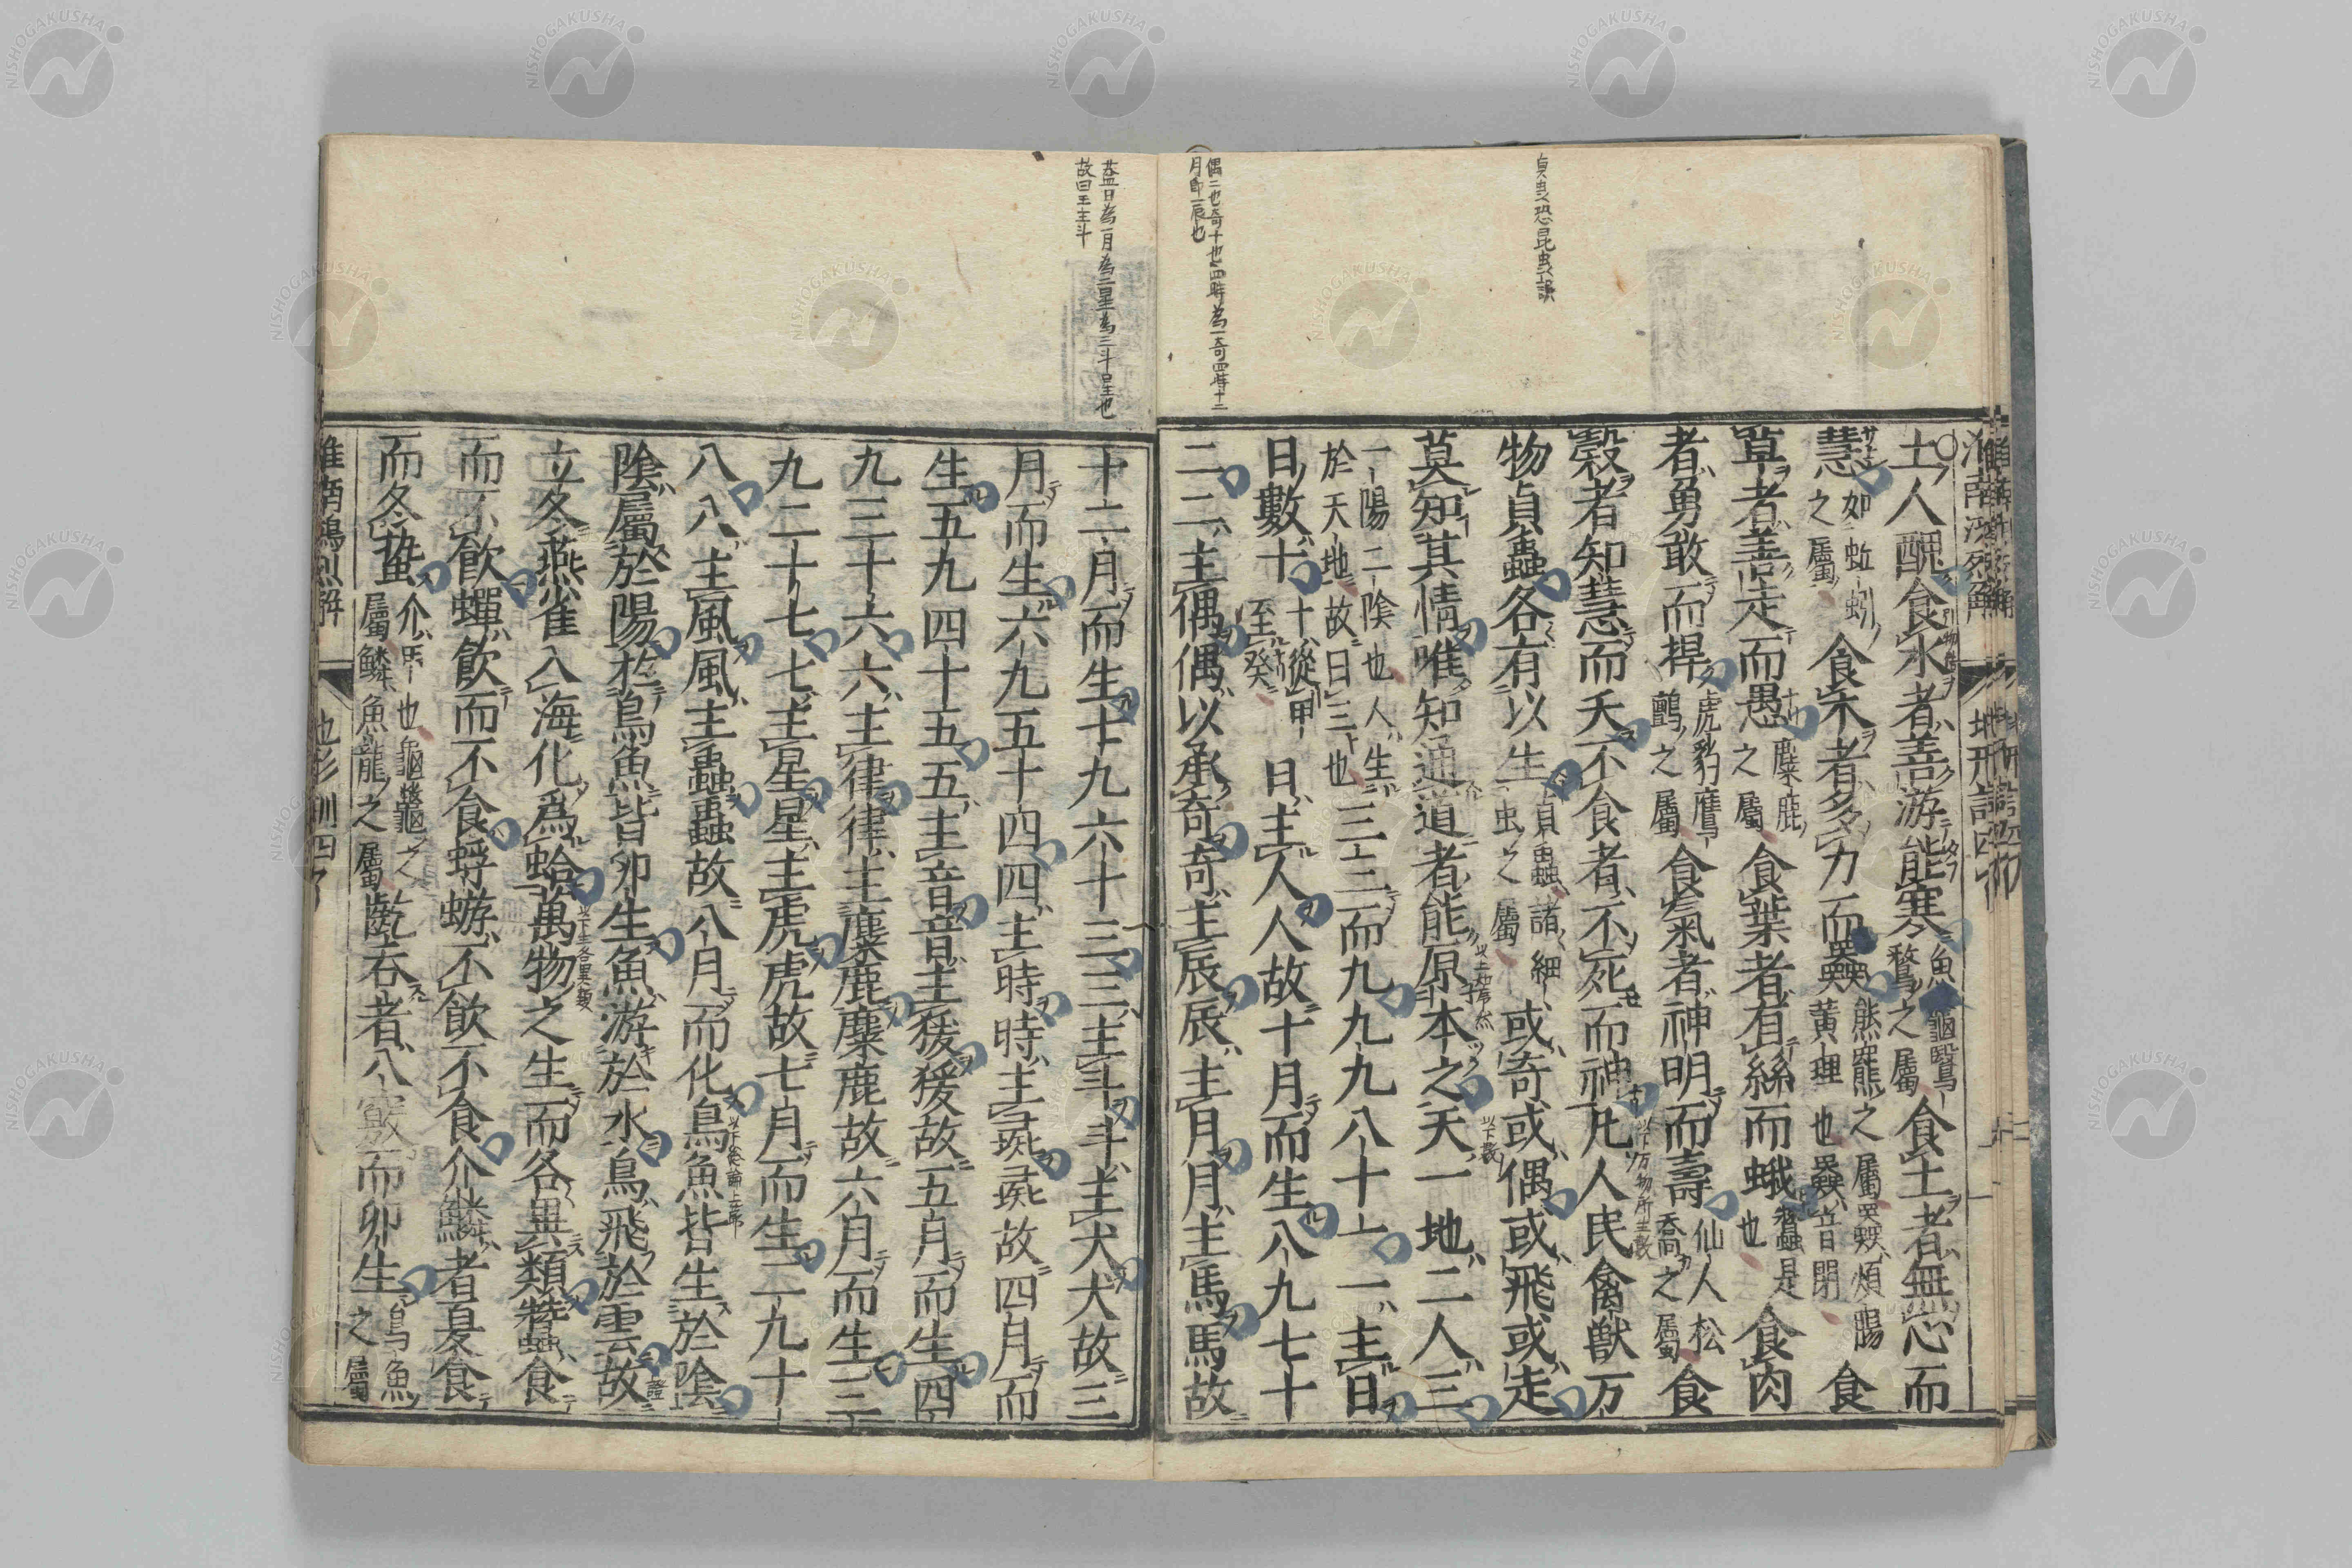 貞虫恐昆虫誤
偶二也奇十也四時為一奇四時十二
月即辰也
土人醜食水者善游能寒魚龜鷖鶩之屬食土者無心而
慧如蚯蚓之屬食木者多力而𡚤熊羆之屬𡚤煩腸黃理也𡚤音閉食
草者善走而愚麋鹿之屬食葉者有絲而蛾蠶是也食肉
者勇敢而捍虎豹鷹鸇之屬食氣者神明而壽仙人松喬之屬食
穀者知慧而夭不食者不死而神凡人民禽獸万
物貞蟲各有以生貞蟲諸細虫之屬或奇或偶或飛或走
莫知其情唯知通道者能原本之天一地二人三
一陽二陰也人生於天地故曰三也三三而九九九八十一一主日
日數十十從甲至癸日主人人故十月而生八九七十
二二主偶偶以承奇奇主辰辰主月月主馬馬故
蓋日為一月為二星為三斗星也
故曰王主斗
十二月而生七九六十三三主斗斗主犬犬故三
月而生六九五十四四主時時主彘彘故四月而
生五九四十五五主音音主猨猨故五月而生四
九三十六六主律律主麋鹿麋鹿故六月而生三
九二十七七主星星主虎虎故七月而生二九十
八八主風風主蟲蟲故八月而化鳥魚皆生於陰
陰屬於陽故鳥魚皆卵生魚游於水鳥飛於雲故
立冬燕雀入海化為蛤萬物之生而各異類蠶食
而不飲蟬飲而不食蜉蝣不飲不食介鱗者夏食
而冬蟄介馬也龜鼈之屬鱗魚龍之屬齕吞者八竅而卵生鳥魚之屬
淮南鴻烈解 地形訓四